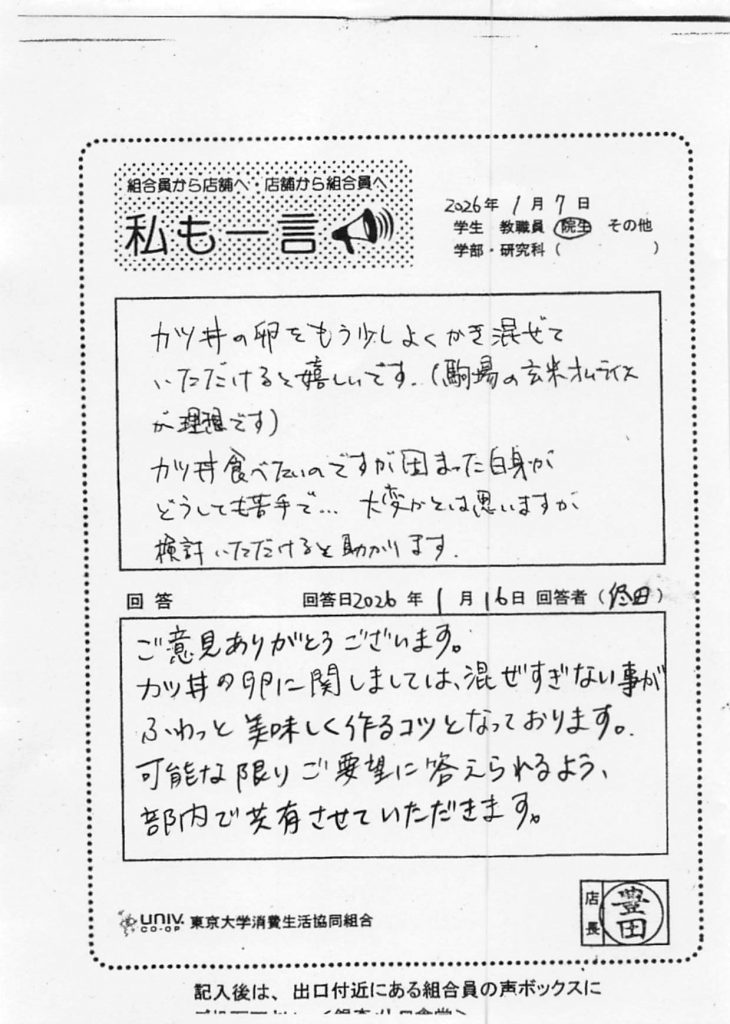 組合員から店舗へ・店舗から組合員へ
私も一言
2026年 1月 7日
学生 教職員 院生 その他
学部・研究科( )
カツ丼の卵をもう少しよくかき混ぜて
いただけると嬉しいです.(駒場の玄米オムライス
が理想です)
カツ丼食べたいのですが固まった白身が
どうしても苦手で… 大変かとは思いますが
検討いただけると助かります.
回答 回答日2026年 1月16日 回答者( 田)
ご意見ありがとうございます。
カツ丼の卵に関しましては、混ぜすぎない事が
ふわっと美味しく作るコツとなっております。
可能な限りご要望に答えられるよう、
部内で共有させていただきます。
UNIV. CO-OP 東京大学消費生活協同組合
店長 豊田
記入後は、出口付近にある組合員の声ボックスに